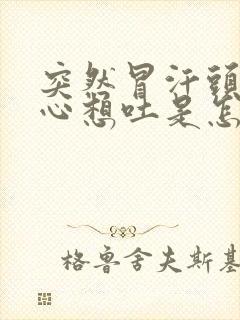 突然冒汗頭
心想吐是怎
格鲁舍夫斯基